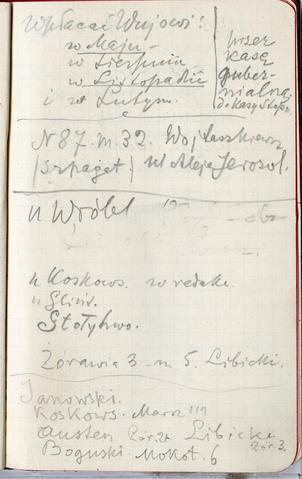 Wpłacać Wujowi:
w Maju
w Sierpniu
w Listopadzie
i w Lutym.
przez
kasę
guber-
nialną
do Kasy
N 87. m. 32. Wojtaszkiewicz
(szpagat) ul Aleja Jerozol.
u Wróbl
u Koskows. w redakc.
u Gliń.
Stołyhwo.
Żórawia 3. m 5. Libicki.
Janowski.
Koskows. Marsz 111
Austen Żór. 24 Libicki
Żór 3.
Boguski. Mokot. 6